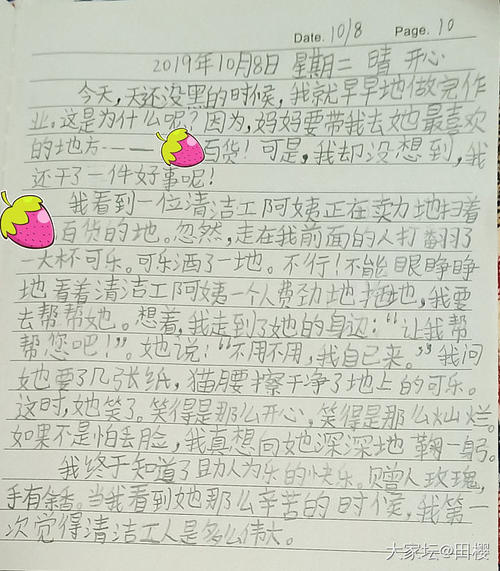 Date. 10/8 Page. 10
2019年10月8日 星期二 晴 开心
今天,天还没黑的时候,我就早早地做完作
业。这是为什么呢?因为,妈妈要带我去她最喜欢
的地方——百货!可是,我却没想到,我
还干了一件好事呢!
我看到一位清洁工阿姨正在卖力地扫着
百货的地。忽然,走在我前面的人打翻了
一大杯可乐。可乐洒了一地。不行!不能眼睁睁
地看着清洁工阿姨一个人费劲地拖地,我要
去帮帮她。想着,我走到了她的身边:“让我帮
帮您吧!”。她说:“不用不用,我自己来。”我问
她要了几张纸,猫腰擦干净了地上的可乐。
这时,她笑了。笑得是那么开心,笑得是那么灿烂。
如果不是怕丢脸,我真想向她深深地鞠一躬。
我终于知道了助人为乐的快乐。赠人玫瑰,
手有余香。当我看到她那么辛苦的时候,我第一
次觉得清洁工人是多么伟大。
大家坛@田樱